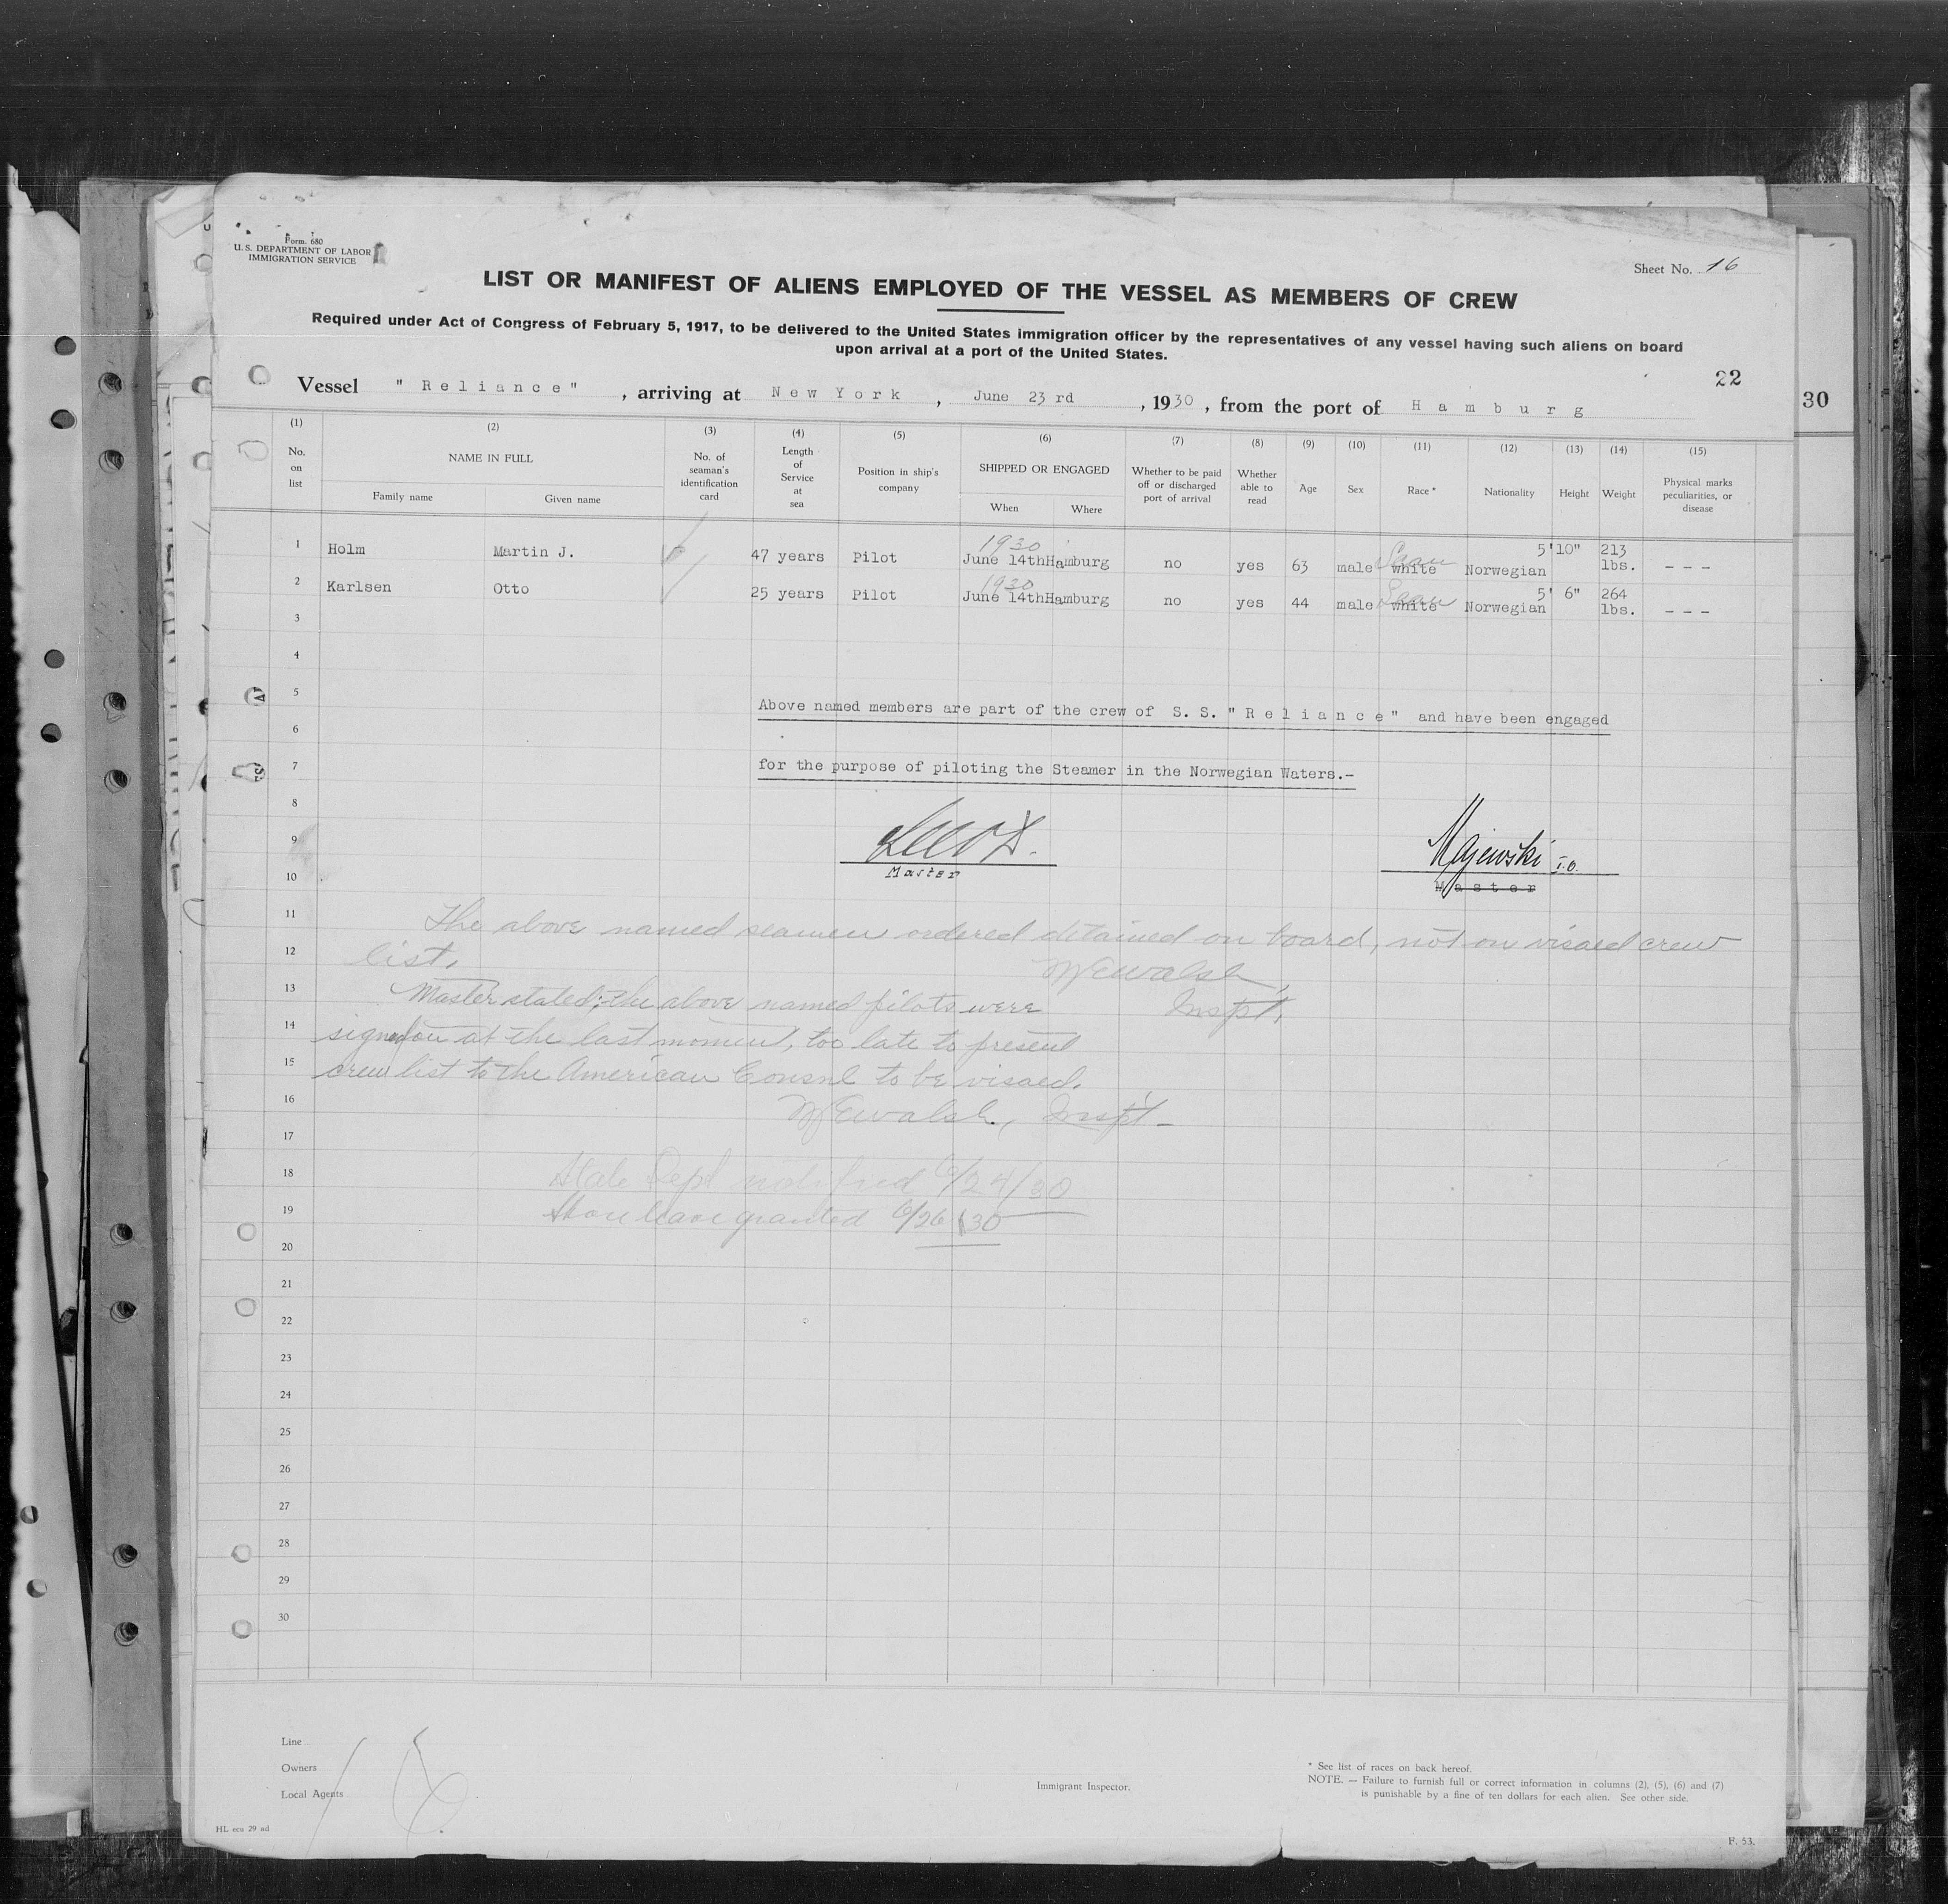 Form. 680
U. S. DEPARTMENT OF LABOR
IMMIGRATION SERVICE
Sheet No. 16
LIST OR MANIFEST OF ALIENS EMPLOYED OF THE VESSEL AS MEMBERS OF CREW
Required under Act of Congress of February 5, 1917, to be delivered to the United States immigration officer by the representatives of any vessel having such aliens on board
upon arrival at a port of the United States.
22
30
Vessel "Reliance", arriving at New York, June 23rd, 1930, from the port of Hamburg
(1) (2) (3) (4) (5) (6) (7) (8) (9) (10) (11) (12) (13) (14) (15)
No. on list
NAME IN FULL
Family name Given name
No. of seaman's identification card
Length of Service at sea
Position in ship's company
SHIPPED OR ENGAGED
When Where
Whether to be paid off or discharged port of arrival
Whether able to read
Age
Sex
Race*
Nationality
Height
Weight
Physical marks peculiarities, or disease
1 Holm Martin J. 47 years Pilot 1930 June 14th Hamburg no yes 63 male white Scan Norwegian 5'10" 213 lbs. - - -
2 Karlsen Otto 25 years Pilot 1930 June 14th Hamburg no yes 44 male white Scan Norwegian 5' 6" 264 lbs. - - -
3
4
5
Above named members are part of the crew of S. S. "Reliance" and have been engaged
6
7
for the purpose of piloting the Steamer in the Norwegian Waters.-
8
9
Majewski I.O.
10
Master
Master
11
The above named seamen ordered detained on board, not on visaed crew
12
list.
WEWalsh,
13
Master stated; the above named pilots were
Inspt.
14
signed on at the last moment, too late to present
15
crew list to the American Consul to be visaed.
16
WEWalsh, Insp't
17
18
State Dept notified 6/24/30
19
Shore leave granted 6/26/30
20
21
22
23
24
25
26
27
28
29
30
Line
Owners
Local Agents
Immigrant Inspector.
* See list of races on back hereof.
NOTE. — Failure to furnish full or correct information in columns (2), (5), (6) and (7)
is punishable by a fine of ten dollars for each alien. See other side.
HL eca 29 ad
F. 53.